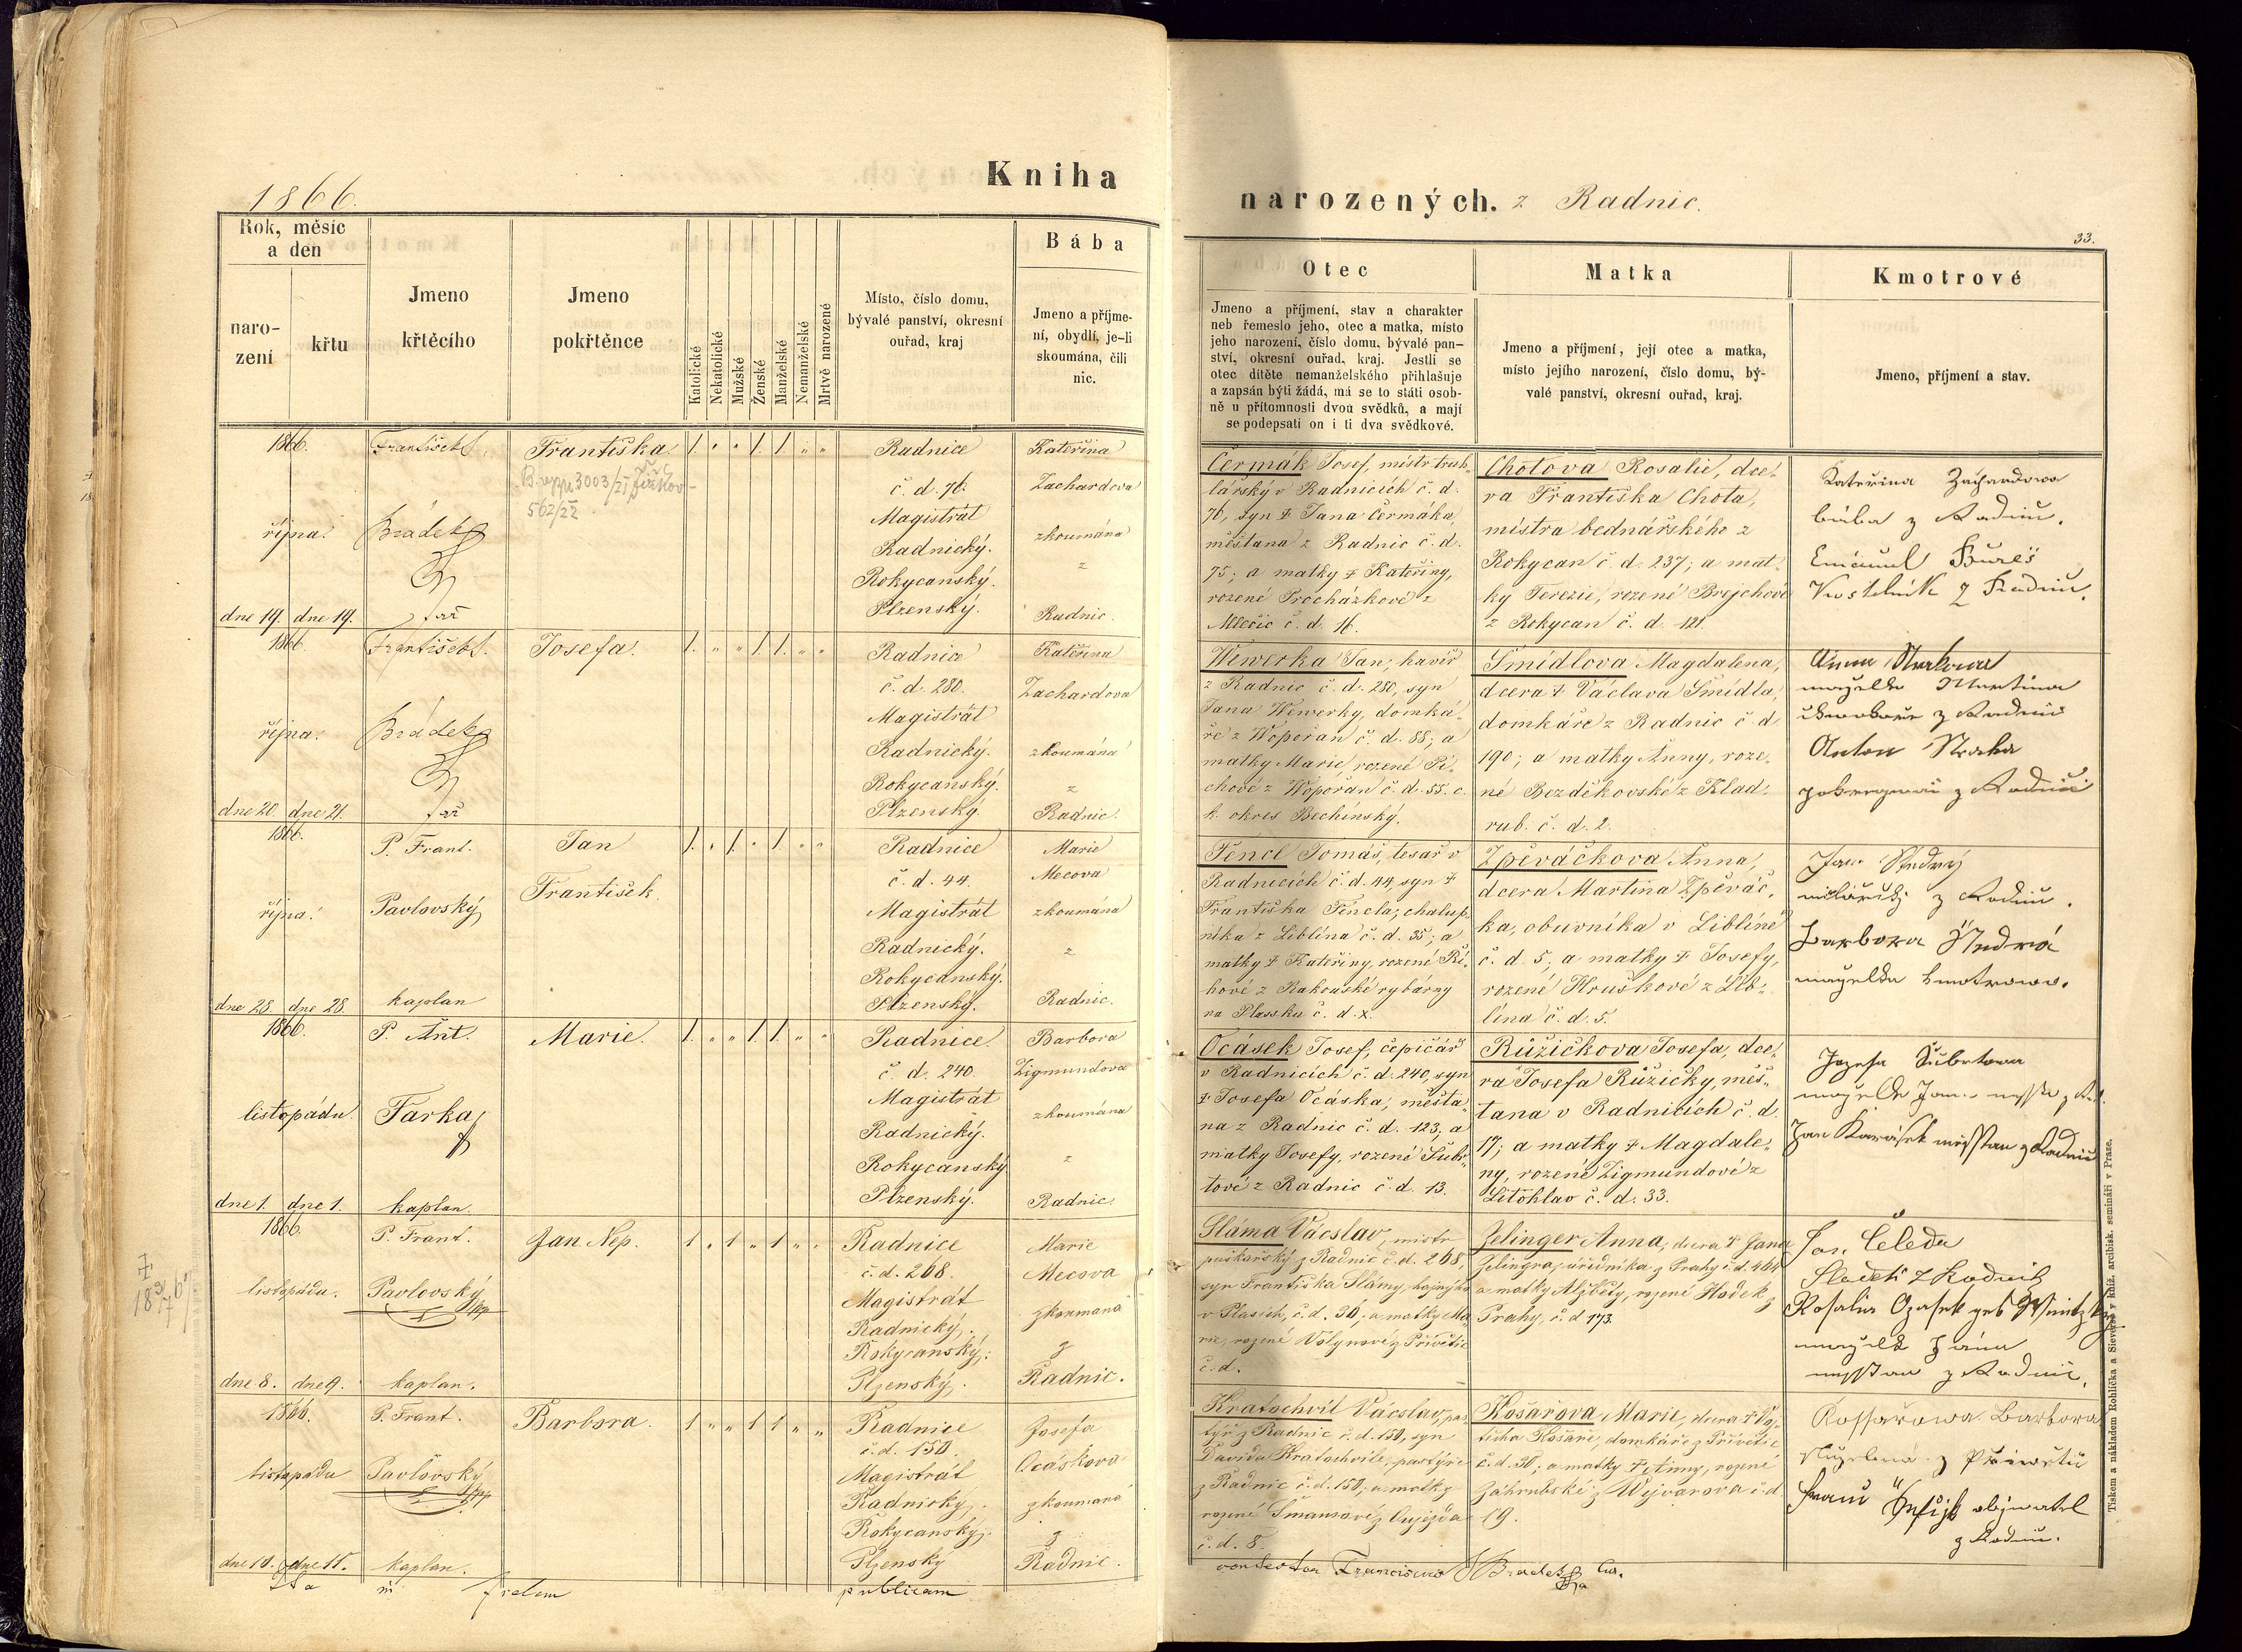 1866.
Kniha
narozených. z Radnic.
33.
Rok, měsíc
a den
naro-
zení
křtu
Jmeno
křtěcího
Jmeno
pokřtěnce
Katolické
Nekatolické
Mužské
Ženské
Manželské
Nemanželské
Mrtvě narozené
Místo, číslo domu,
bývalé panství, okresní
ouřad, kraj
Bába
Jmeno a příjme-
ní, obydlí, je-li
skoumána, čili
nic.
Otec
Jmeno a příjmení, stav a charakter
neb řemeslo jeho, otec a matka, místo
jeho narození, číslo domu, bývalé pan-
ství, okresní ouřad, kraj. Jestli se
otec dítěte nemanželského přihlašuje
a zapsán býti žádá, má se to státi osob-
ně u přítomnosti dvou svědků, a mají
se podepsati on i ti dva svědkové.
Matka
Jmeno a příjmení, její otec a matka,
místo jejího narození, číslo domu, bý-
valé panství, okresní ouřad, kraj.
Kmotrové
Jmeno, příjmení a stav.
1866.
října.
dne 19. dne 19.
František
Brádek
Františka
1. " " 1. 1. " "
Radnice
č. d. 76.
Magistrát
Radnický.
Rokycanský.
Plzenský.
Kateřina
Zachardova
zkoumána
z
Radnic.
Čermák Josef, mistr truh-
lářský v Radnicích č. d.
76, syn † Jana Čermáka,
měštana z Radnic č. d.
75; a matky † Kateřiny,
rozené Procházkové z
Mlečic č. d. 16.
Chotova Rosalie, dce-
ra Františka Chota,
mistra bednářského z
Rokycan č. d. 237; a mat-
ky Terezie, rozené Brejchové
z Rokycan č. d. 121.
Kateřina Zachardowa
bába z Radnic.
1866.
října.
dne 20. dne 21.
František
Brádek
Josefa.
1. " " 1. 1. " "
Radnice
č. d. 280.
Magistrát
Radnický.
Rokycanský.
Plzenský.
Kateřina
Zachardova
zkoumána
z
Radnic.
Wewerka Jan, havíř
z Radnic č. d. 280, syn
Jana Wewerky, domká-
ře z Wopořan č. d. 88; a
matky Marie, rozené Pí-
chové z Wopořan č. d. 55. c.
k. okres Bechínský.
Šmídlova Magdalena,
dcera † Václava Šmídla,
domkáře z Radnic č. d.
190; a matky Anny, roze-
né Bezděkovské z Klad-
rub. č. d. 2.
Anton Straka
1866.
října.
dne 28. dne 28.
P. Frant.
Pavlovský
kaplan
Jan
František.
1. " 1. " 1. " "
Radnice
č. d. 44.
Magistrát
Radnický.
Rokycanský.
Plzenský.
Marie
Mecova
zkoumána
z
Radnic.
Fencl Tomáš, tesař v
Radnicích č. d. 44, syn †
Františka Fencla, chalup-
níka z Liblína č. d. 35; a
matky † Kateřiny, rozené Ří-
hové z Rakouské rybárny
na Plassku č. d. x.
Zpěváčkova Anna,
dcera Martina Zpěváč-
ka, obuvníka v Liblíně
č. d. 5; a matky † Josefy,
rozené Hruškové z Lib-
lína č. d. 5.
Barbora Štedrá
1866.
listopadu.
dne 1. dne 1.
P. Ant.
Farka
kaplan.
Marie.
1. " " 1. 1. " "
Radnice.
č. d. 240.
Magistrát
Radnický.
Rokycanský
Plzenský.
Barbora
Zigmundova
zkoumána
z
Radnic.
Ocásek Josef, čepičář
v Radnicích č. d. 240, syn
† Josefa Ocáska, měšta-
na z Radnic č. d. 123; a
matky Josefy, rozené Šubr-
tové z Radnic č. d. 13.
Růžičkova Josefa, dce-
ra Josefa Růžičky, měš-
tana v Radnicích č. d.
17; a matky † Magdale-
ny, rozené Zigmundové z
Litohlav č. d. 33.
Jan Karásek
1866.
listopadu.
dne 8. dne 9.
P. Frant.
Pavlovský
kaplan.
Jan Nep.
1 " 1 " 1 " "
Radnice
č. d. 268.
Magistrát
Radnický.
Rokycanský.
Plzenský.
Marie
Mecova
zkoumaná
z
Radnic.
Sláma Vácslav, mistr
puškařský z Radnic č. d. 268,
syn Františka Slámy, hajného
v Plasích, č. d. 30; a matky Ma-
rie, rozené Volynové z Přívětic
č. d.
Zelinger Anna, dcera † Jana
Zelingra, úředníka z Prahy č. d. 464
a matky Alžběty, rozené Hodek z
Prahy, č. d 173.
Jos. Čeleda
1866.
listopadu
dne 10. dne 11.
P. Frant.
Pavlovský
kaplan.
Barbora.
1 " " 1 1 " "
Radnice
č. d. 150.
Magistrát
Radnický.
Rokycanský.
Plzenský
Josefa
Ocáskova
zkoumaná
z
Radnic.
Kratochvil Vácslav, pas-
týř z Radnic č. d. 150, syn
Davida Kratochvíle, pastýře
z Radnic č. d. 150; a matky
rozené Šmausové z Oujezda
č. d. 8.
Košařova Marie, dcera † Vo-
jtěcha Košaře, domkáře z Přívětic
č. d. 30; a matky † Anny, rozené
Záhrubské z Wejvanova č. d.
19.
Kossařowa Barbora
publicam
Tiskem a nákladem Rohlíčka a Sieverse v kníž. arcibisk. semináři v Praze.